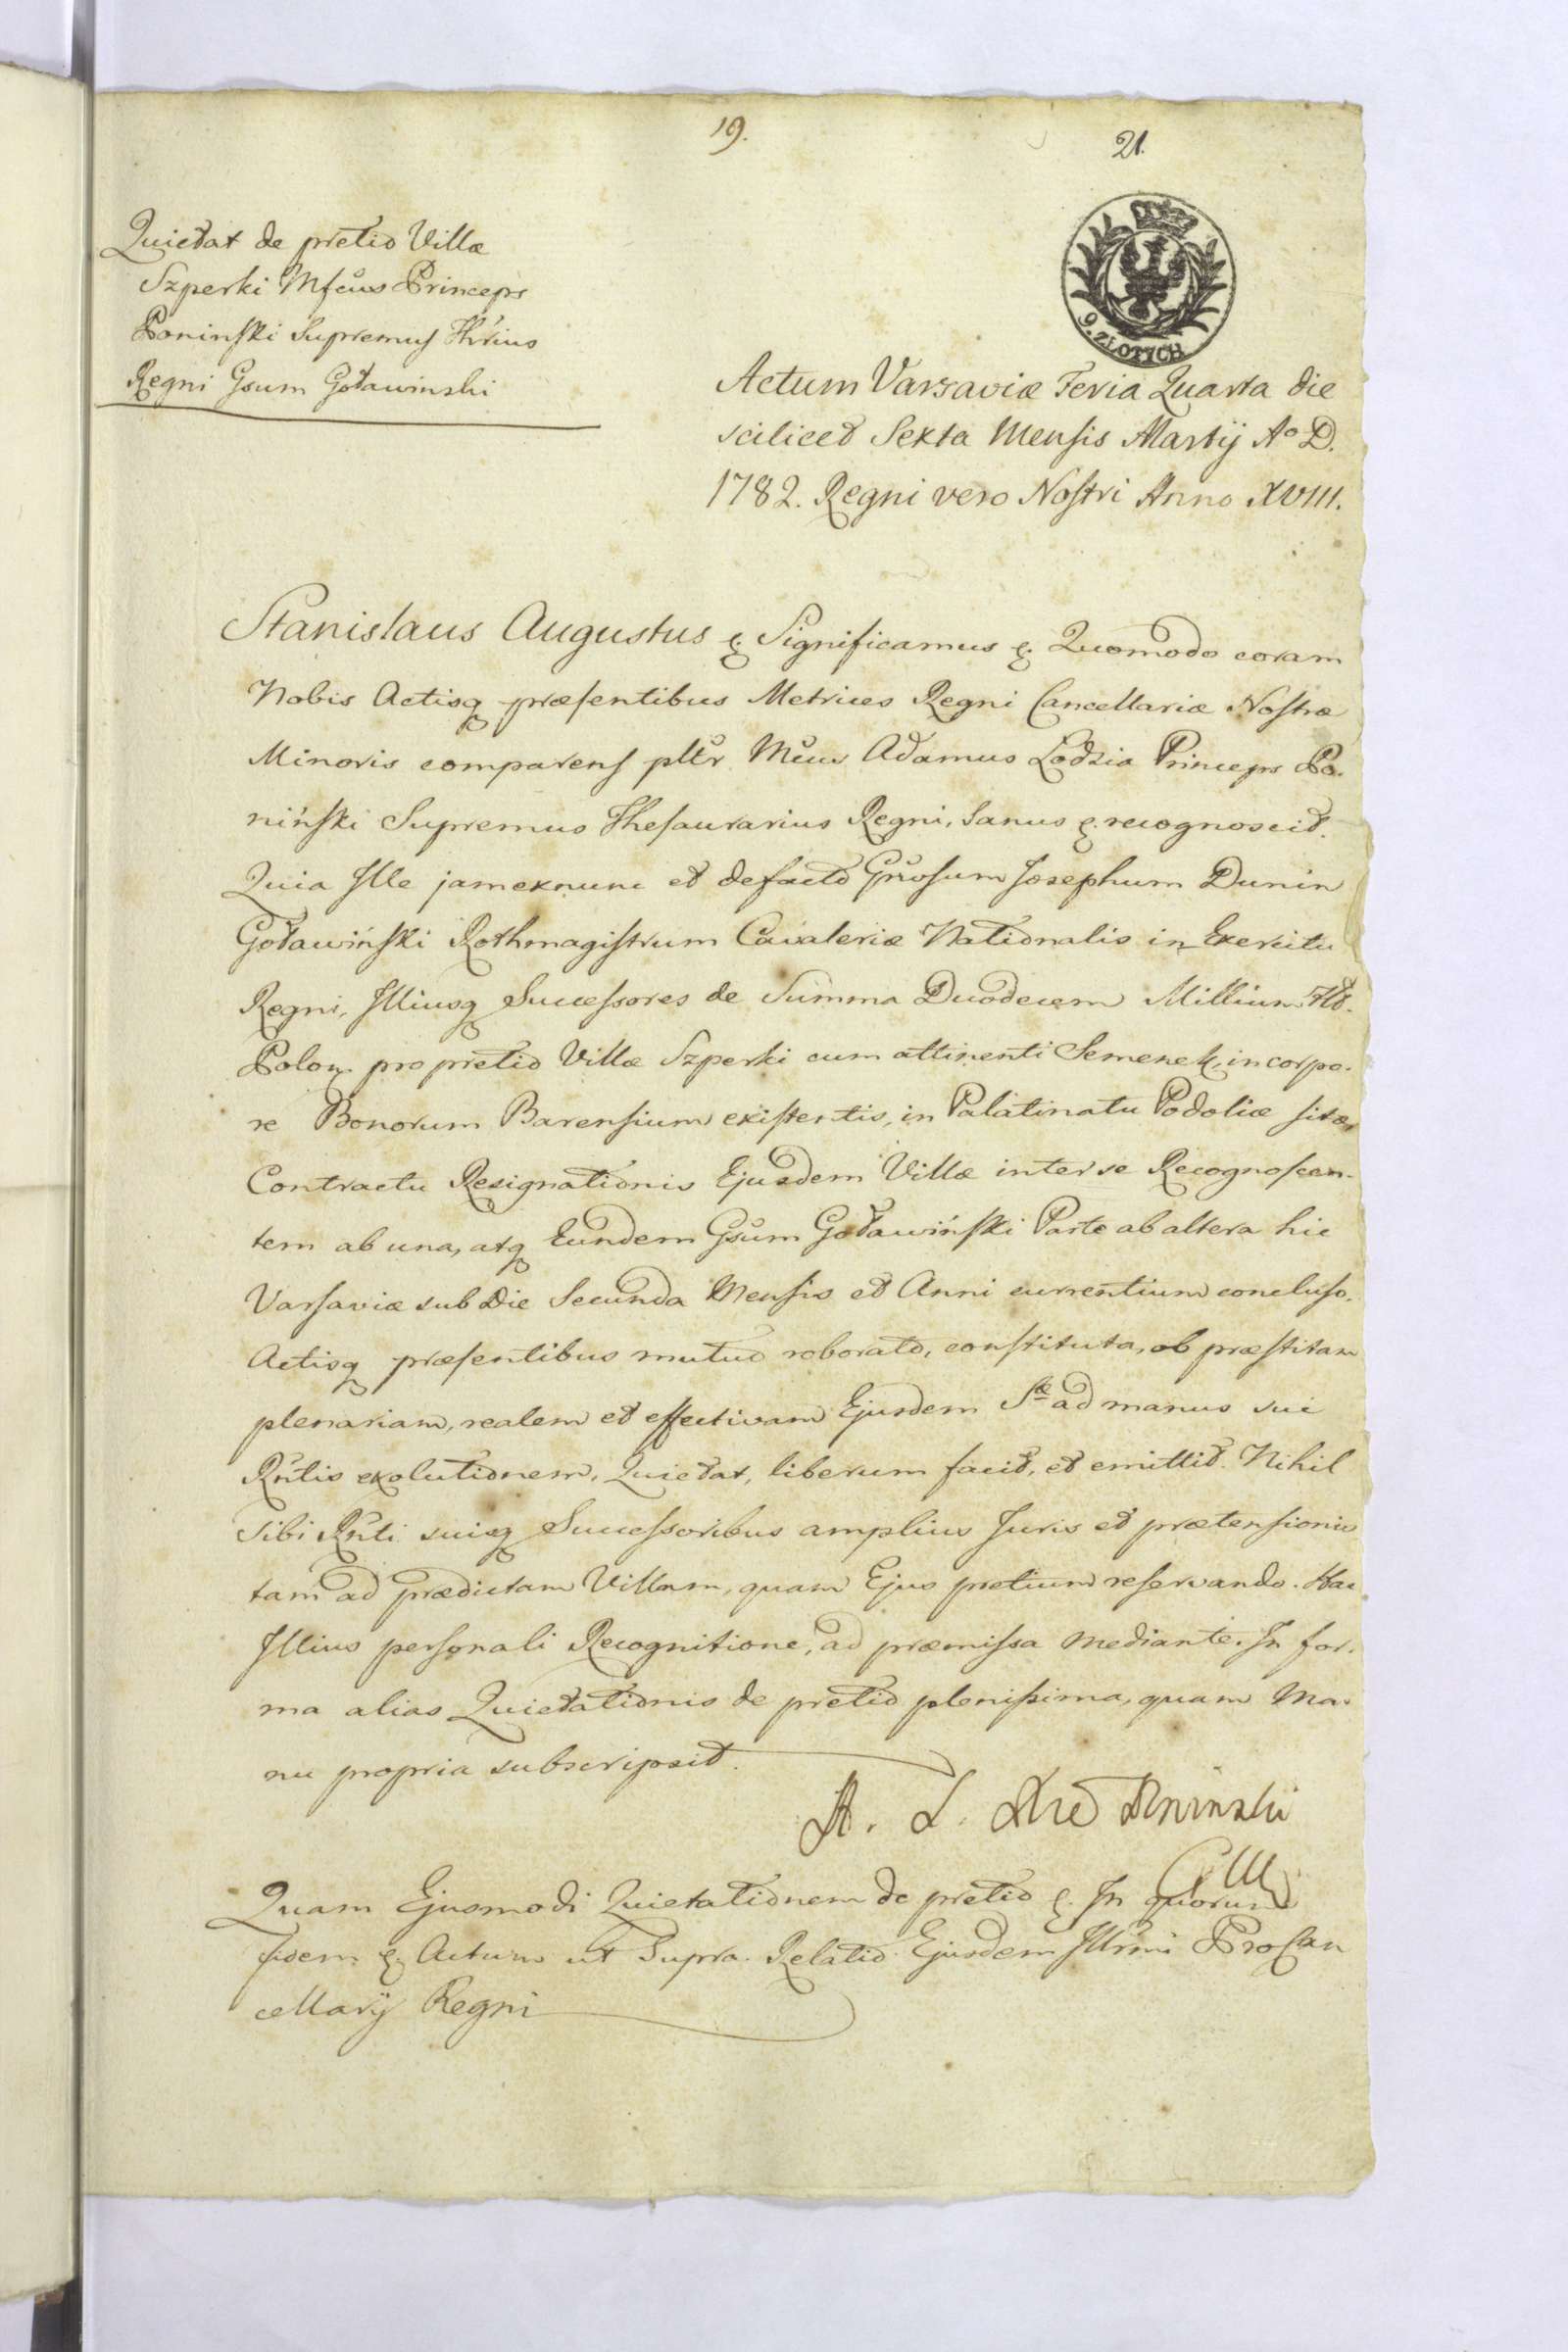 19.
21.
Quietat de pretio Villæ
Szperki Mfcus Princeps
Poninski Supremus Thrius
Regni Gsum Goławinski
9. ZŁOTYCH
Actum Varsaviæ Feria Quarta die
scilicet Sexta Mensis Martij Aº D.
1782. Regni vero Nostri Anno XVIII.
Stanislaus Augustus &. Significamus &. Quomodo coram
Nobis Actisq præsentibus Metrices Regni Cancellariæ Nostræ
Minoris comparens pltr Mcus Adamus Lodzia Princeps Po-
niński Supremus Thesaurarius Regni, Sanus &. recognoscit.
Quia Ille jamexnunc et defacto Gnrosum Josephum Dunin
Goławiński Rothmagistrum Cavaleriæ Nationalis in Exercitu
Regni, Illiusq Successores de Summa Duodecem Millium Fld.
Polon. pro pretio Villæ Szperki cum attinenti Semenek, in corpo-
re Bonorum Barensium existentis, in Palatinatu Podoliæ sitæ,
Contractu Resignationis Ejusdem Villæ inter se Recognoscen-
tem ab una, atq Eundem Gsum Goławiński Parte ab altera hic
Varsaviæ sub Die Secunda Mensis et Anni currentium concluso,
Actisq præsentibus mutuo roborato, constituta, ob præstitam
plenariam, realem et effectivam Ejusdem Sæ ad manus sui
Rntis exolutionem, Quietat, liberum facit, et emittit. Nihil
Sibi Rnti suisq Successoribus amplius Juris et prætensionis
tam ad prædictam Villam, quam Ejus pretium reservando. Hac
Illius personali Recognitione, ad præmissa mediante. In for-
ma alias Quietationis de pretio plenissima, quam Ma-
nu propria subscripsit.
A. L. Poninski
Quam Ejusmodi Quietationem de pretio &. In quorum
fidem &. Actum ut Supra. Relatio Ejusdem Illrmi ProCan
cellarij Regni